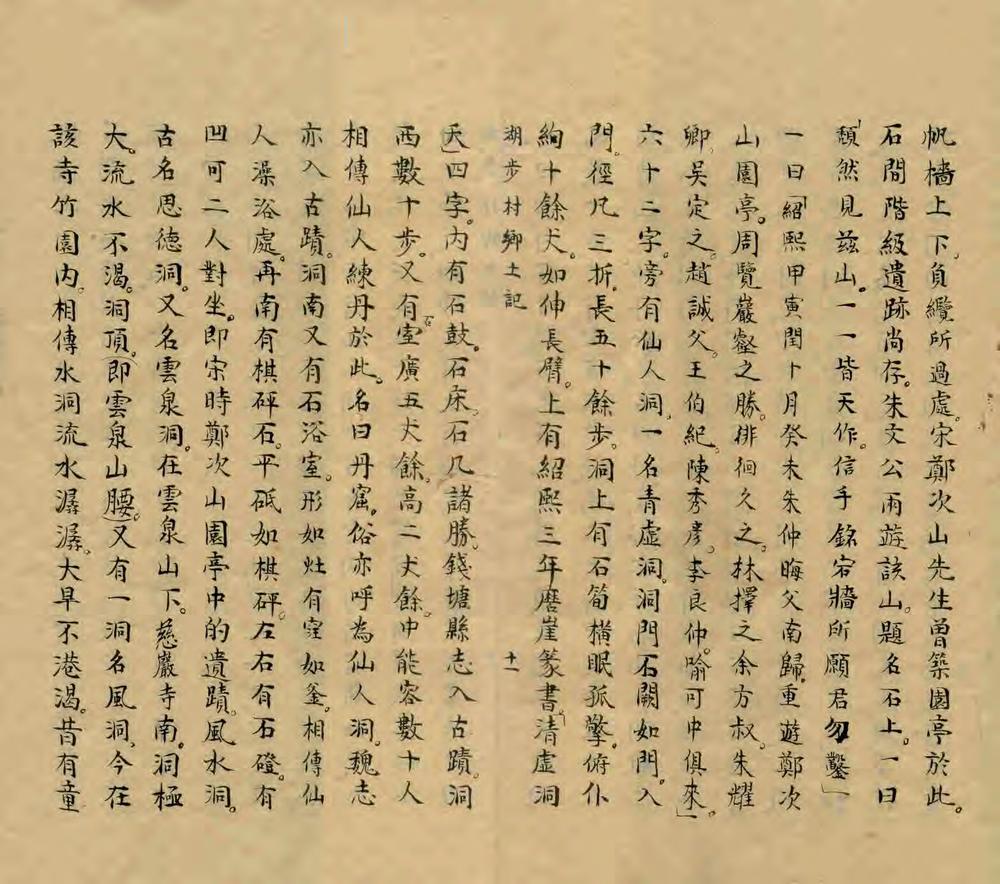 帆檣上下,負纜所過處。宋鄭次山先生曾築園亭於此。
石間階級遺跡尚存。朱文公兩遊該山。題名石上。一曰
「頹然見茲山。一一皆天作。信手銘宕牆所願君勿鑿」
一曰「紹熙甲寅閏十月癸未朱仲晦父南歸。重遊鄭次
山園亭。周覽巖壑之勝。徘徊久之。林擇之余方叔。朱耀
卿。吳定之。趙誠父。王伯紀。陳秀彥。李良仲。喻可中俱來」。
六十二字。旁有仙人洞。一名青虛洞。洞門石闕如門。入
門。徑凡三折。長五十餘步。洞上有石筍橫眠孤擎。俯仆
絢十餘丈。如伸長臂。上有紹熙三年磨崖篆書。「清虛洞
湖步村鄉土記 十一
天」四字。內有石鼓。石床。石几諸勝。錢塘縣志入古蹟。洞
西數十步。又有石室廣五丈餘。高二丈餘。中能容數十人
相傳仙人練丹於此。名曰丹窟。俗亦呼為仙人洞。魏志
亦入古蹟。洞南又有石浴室。形如灶有窪如釜。相傳仙
人澡浴處。再南有棋砰石。平砥如棋砰。左右有石磴。有
凹可二人對坐。即宋時鄭次山園亭中的遺蹟。風水洞。
古名思德洞。又名雲泉洞。在雲泉山下。慈嚴寺南。洞極
大。流水不渴。洞頂。(即雲泉山腰)又有一洞名風洞,今在
該寺竹園內。相傳水洞流水潺潺。大旱不港渴。昔有童